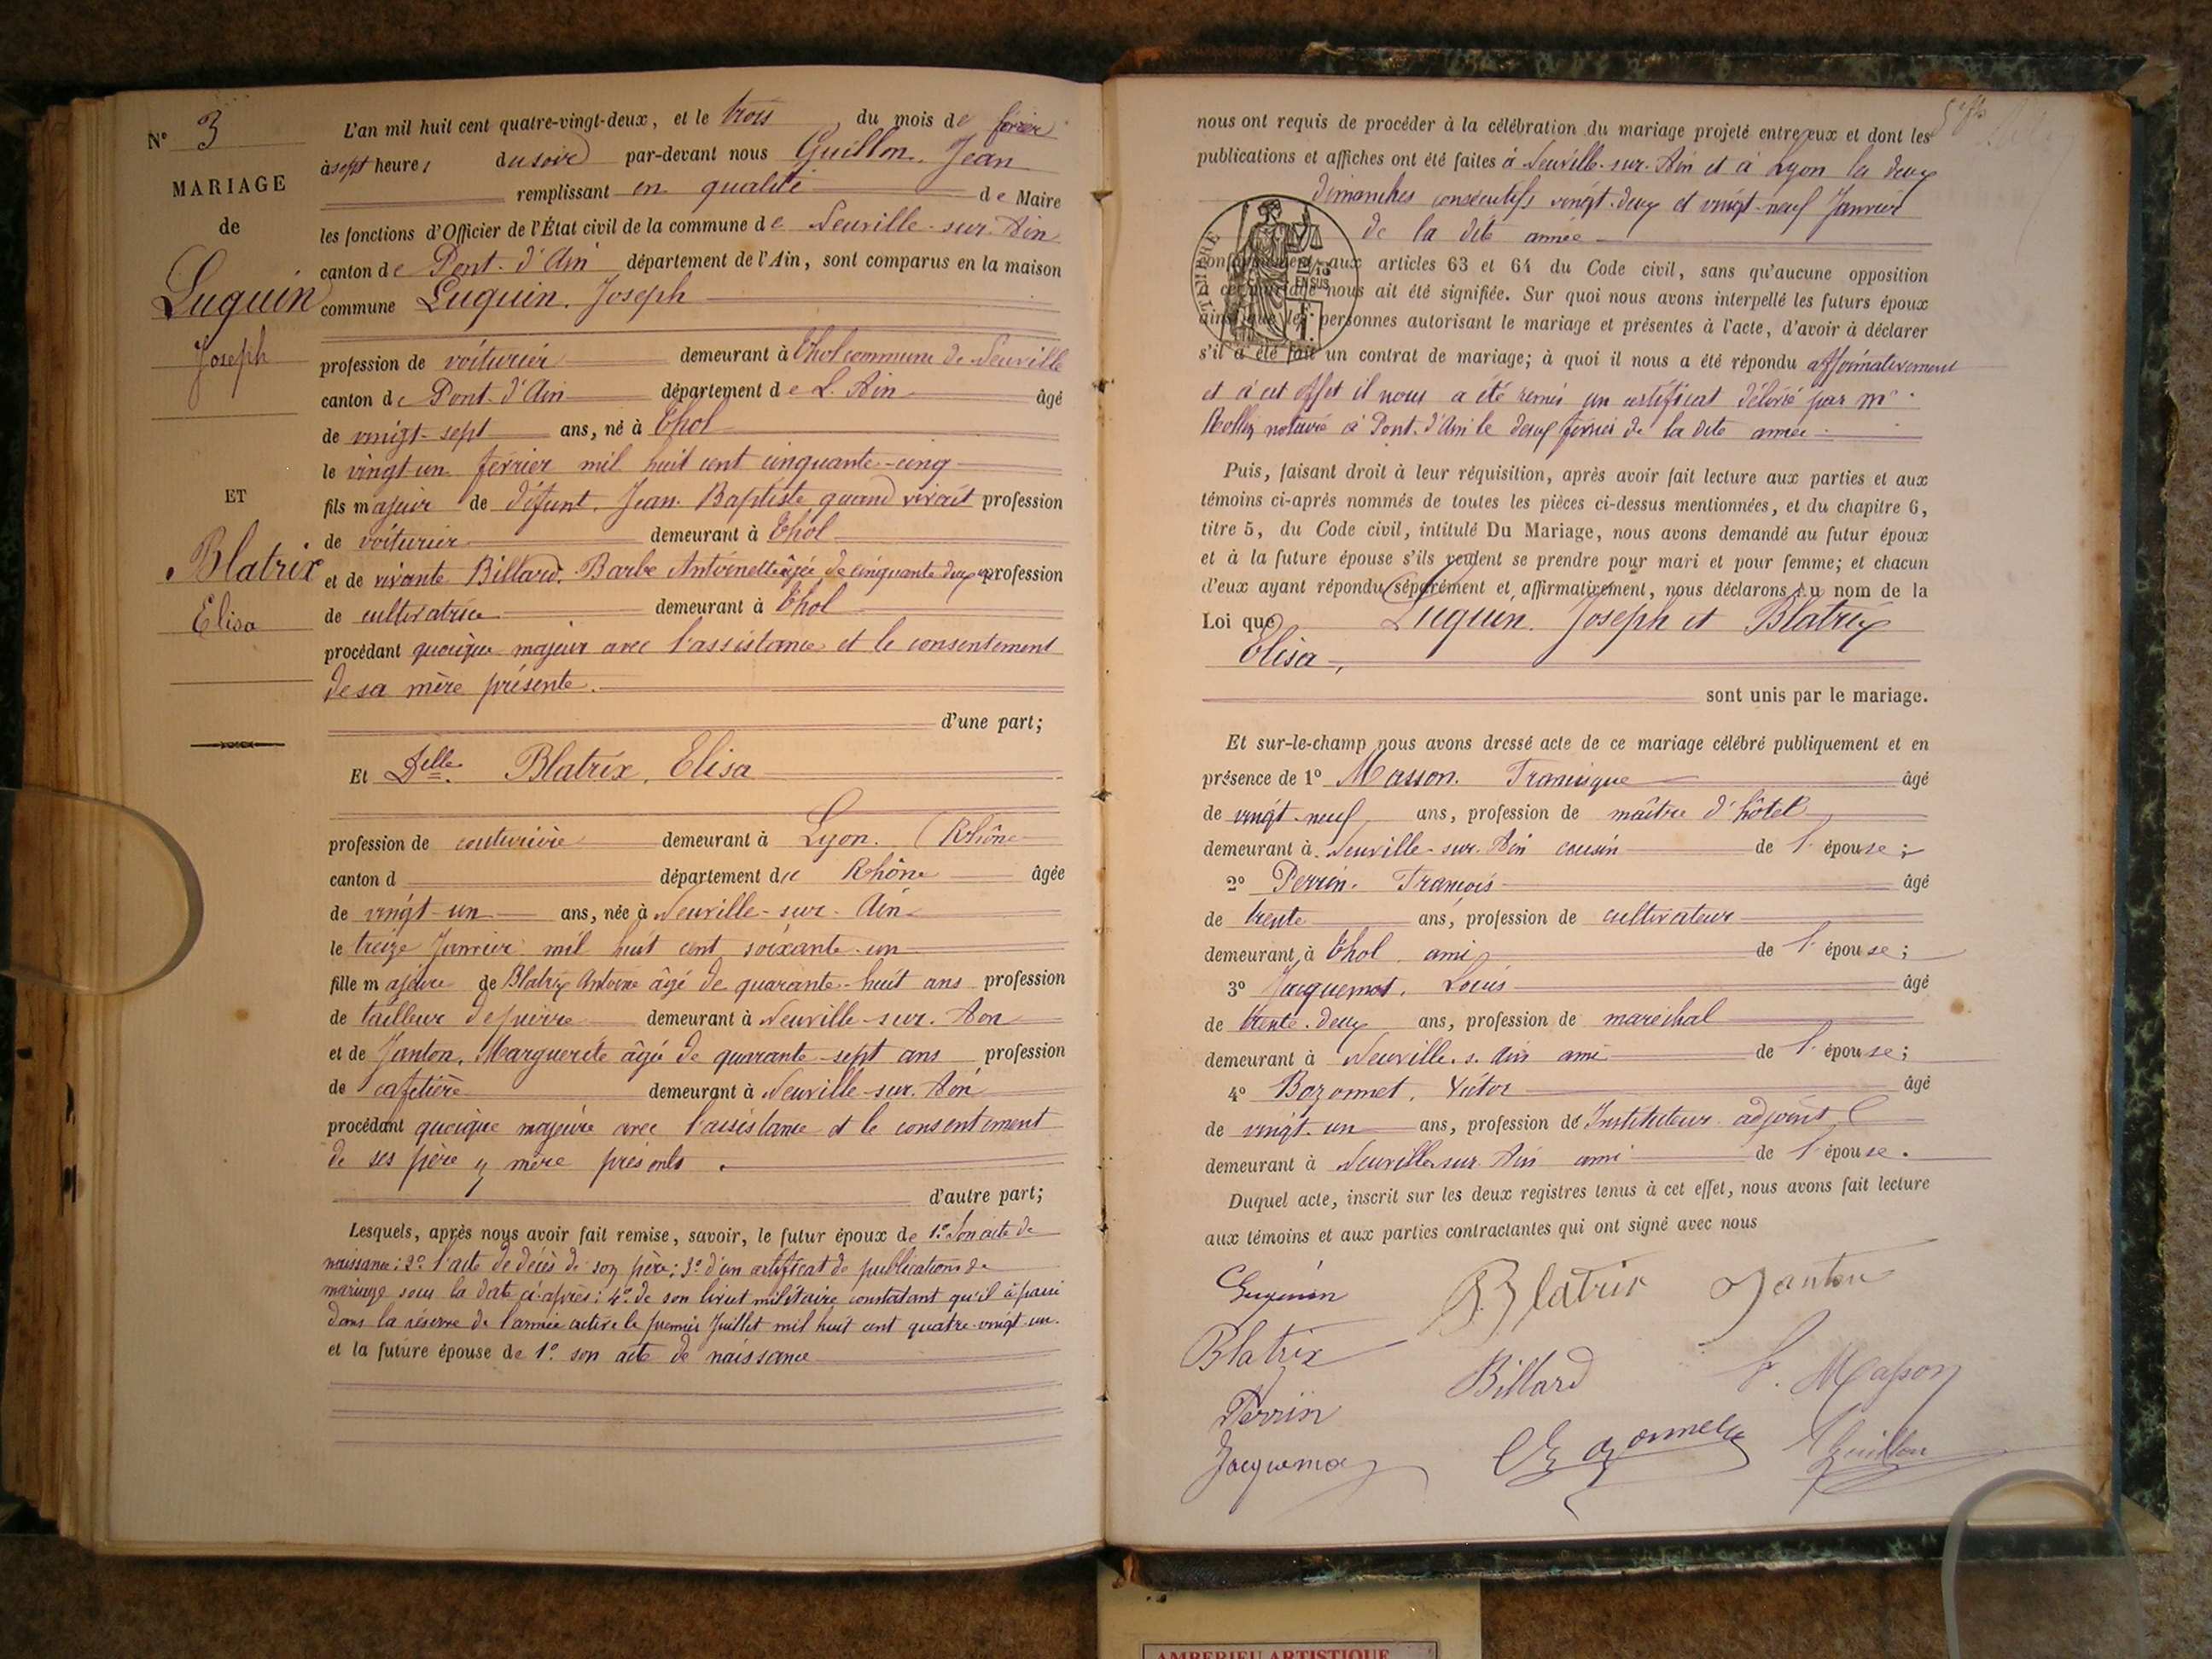 N° 3
MARIAGE
de
Luguin
Joseph
ET
Blatrix
Elisa
L'an mil huit cent quatre-vingt-deux, et le trois du mois de février
à sept heures du soir par-devant nous Guillon, Jean
remplissant en qualité de Maire
les fonctions d'Officier de l'État civil de la commune de Neuville-sur-Ain
canton de Pont-d'Ain département de l'Ain, sont comparus en la maison
commune Luguin, Joseph
profession de voiturier demeurant à Thol commune de Neuville
canton de Pont-d'Ain département de L'Ain âgé
de vingt-sept ans, né à Thol
le vingt-un février mil huit cent cinquante-cinq
fils majeur de défunt Jean-Baptiste quand vivait profession
de voiturier demeurant à Thol
et de vivante Billard, Barbe Antoinette âgée de cinquante deux profession
de cultivatrice demeurant à Thol
procédant quoique majeur avec l'assistance et le consentement
de sa mère présente.
d'une part;
Et Delle Blatrix, Elisa
profession de couturière demeurant à Lyon. (Rhône
canton d département de Rhône âgée
de vingt-un ans, née à Neuville-sur-Ain
le treize Janvier mil huit cent soixante-un
fille majeure de Blatrix Antoine âgé de quarante-huit ans profession
de tailleur de pierre demeurant à Neuville-sur-Ain
et de Janton, Marguerite âgée de quarante-sept ans profession
de cafetière demeurant à Neuville-sur-Ain
procédant quoique majeure avec l'assistance et le consentement
de ses père & mère présents.
d'autre part;
Lesquels, après nous avoir fait remise, savoir, le futur époux de 1° Son acte de
naissance; 2° l'acte de décès de son père; 3° d'un certificat de publications de
mariage sous la date ci-après; 4° de son livret militaire constatant qu'il a passé
dans la réserve de l'armée active le premier Juillet mil huit cent quatre-vingt-un.
et la future épouse de 1° son acte de naissance
nous ont requis de procéder à la célébration du mariage projeté entre eux et dont les
publications et affiches ont été faites à Neuville-sur-Ain et à Lyon les deux
dimanches consécutifs vingt-deux et vingt-neuf Janvier
de la dite année
conformément aux articles 63 et 64 du Code civil, sans qu'aucune opposition
à ce mariage nous ait été signifiée. Sur quoi nous avons interpellé les futurs époux
ainsi que les personnes autorisant le mariage et présentes à l'acte, d'avoir à déclarer
s'il a été fait un contrat de mariage; à quoi il nous a été répondu affirmativement
et à cet effet il nous a été remis un certificat délivré par Me
notaire à Pont-d'Ain le deux février de la dite année
Puis, faisant droit à leur réquisition, après avoir fait lecture aux parties et aux
témoins ci-après nommés de toutes les pièces ci-dessus mentionnées, et du chapitre 6,
titre 5, du Code civil, intitulé Du Mariage, nous avons demandé au futur époux
et à la future épouse s'ils veulent se prendre pour mari et pour femme; et chacun
d'eux ayant répondu séparément et affirmativement, nous déclarons au nom de la
Loi que Luguin, Joseph et Blatrix
Elisa,
sont unis par le mariage.
Et sur-le-champ nous avons dressé acte de ce mariage célébré publiquement et en
présence de 1° Masson. Francisque âgé
de vingt-neuf ans, profession de maître d'hôtel
demeurant à Neuville-sur-Ain cousin de l'épouse;
2° Perrin. François âgé
de trente ans, profession de cultivateur
demeurant à Thol ami de l'épouse;
3° Jacquemot, Louis âgé
de trente-deux ans, profession de maréchal
demeurant à Neuville s. Ain ami de l'épouse;
4° Bozonnet, Victor âgé
de vingt-un ans, profession de Instituteur adjoint
demeurant à Neuville sur Ain ami de l'épouse.
Duquel acte, inscrit sur les deux registres tenus à cet effet, nous avons fait lecture
aux témoins et aux parties contractantes qui ont signé avec nous
Luguin Blatrix Janton
Blatrix Billard F. Masson
Perrin
Jacquemot Bozonnet Guillon
AMBERIEU ARTISTIQUE